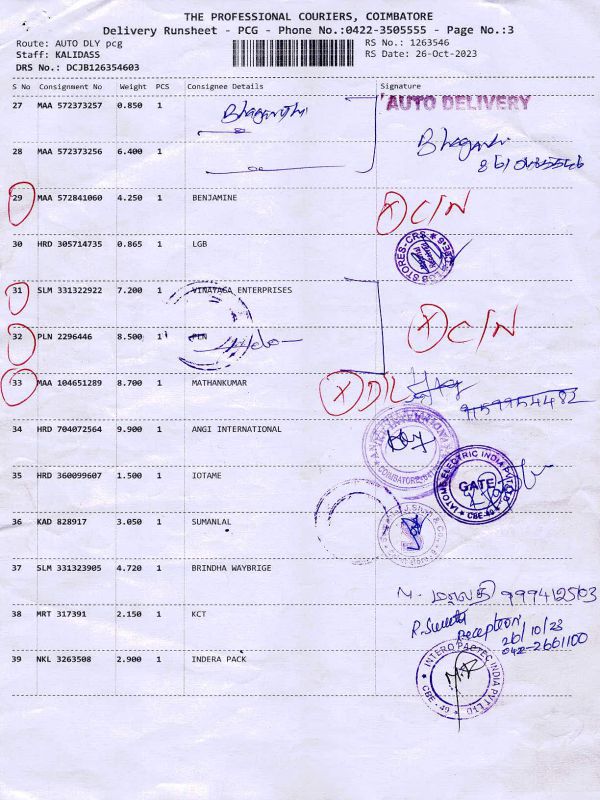 THE PROFESSIONAL COURIERS, COIMBATORE
Delivery Runsheet - PCG - Phone No.:0422-3505555 - Page No.:3
Route: AUTO DLY pcg RS No.: 1263546
Staff: KALIDASS RS Date: 26-Oct-2023
DRS No.: DCJB126354603
S No Consignment No Weight PCS Consignee Details Signature
AUTO DELIVERY
27 MAA 572373257 0.850 1
28 MAA 572373256 6.400 1
29 MAA 572841060 4.250 1 BENJAMINE X C/N
30 HRD 305714735 0.865 1 LGB
STORES-CRS
31 SLM 331322922 7.200 1 VINAYAGA ENTERPRISES
32 PLN 2296446 8.500 1 PLN X C/N
33 MAA 104651289 8.700 1 MATHANKUMAR X D/L
9159954482
34 HRD 704072564 9.900 1 ANGI INTERNATIONAL
35 HRD 360099607 1.500 1 IOTAME
GATE
CBE-49
36 KAD 828917 3.050 1 SUMANLAL
37 SLM 331323905 4.720 1 BRINDHA WAYBRIGE
M. மாலதி 9994125103
38 MRT 317391 2.150 1 KCT
Reception
26/10/23
39 NKL 3263508 2.900 1 INDERA PACK
CBE-49